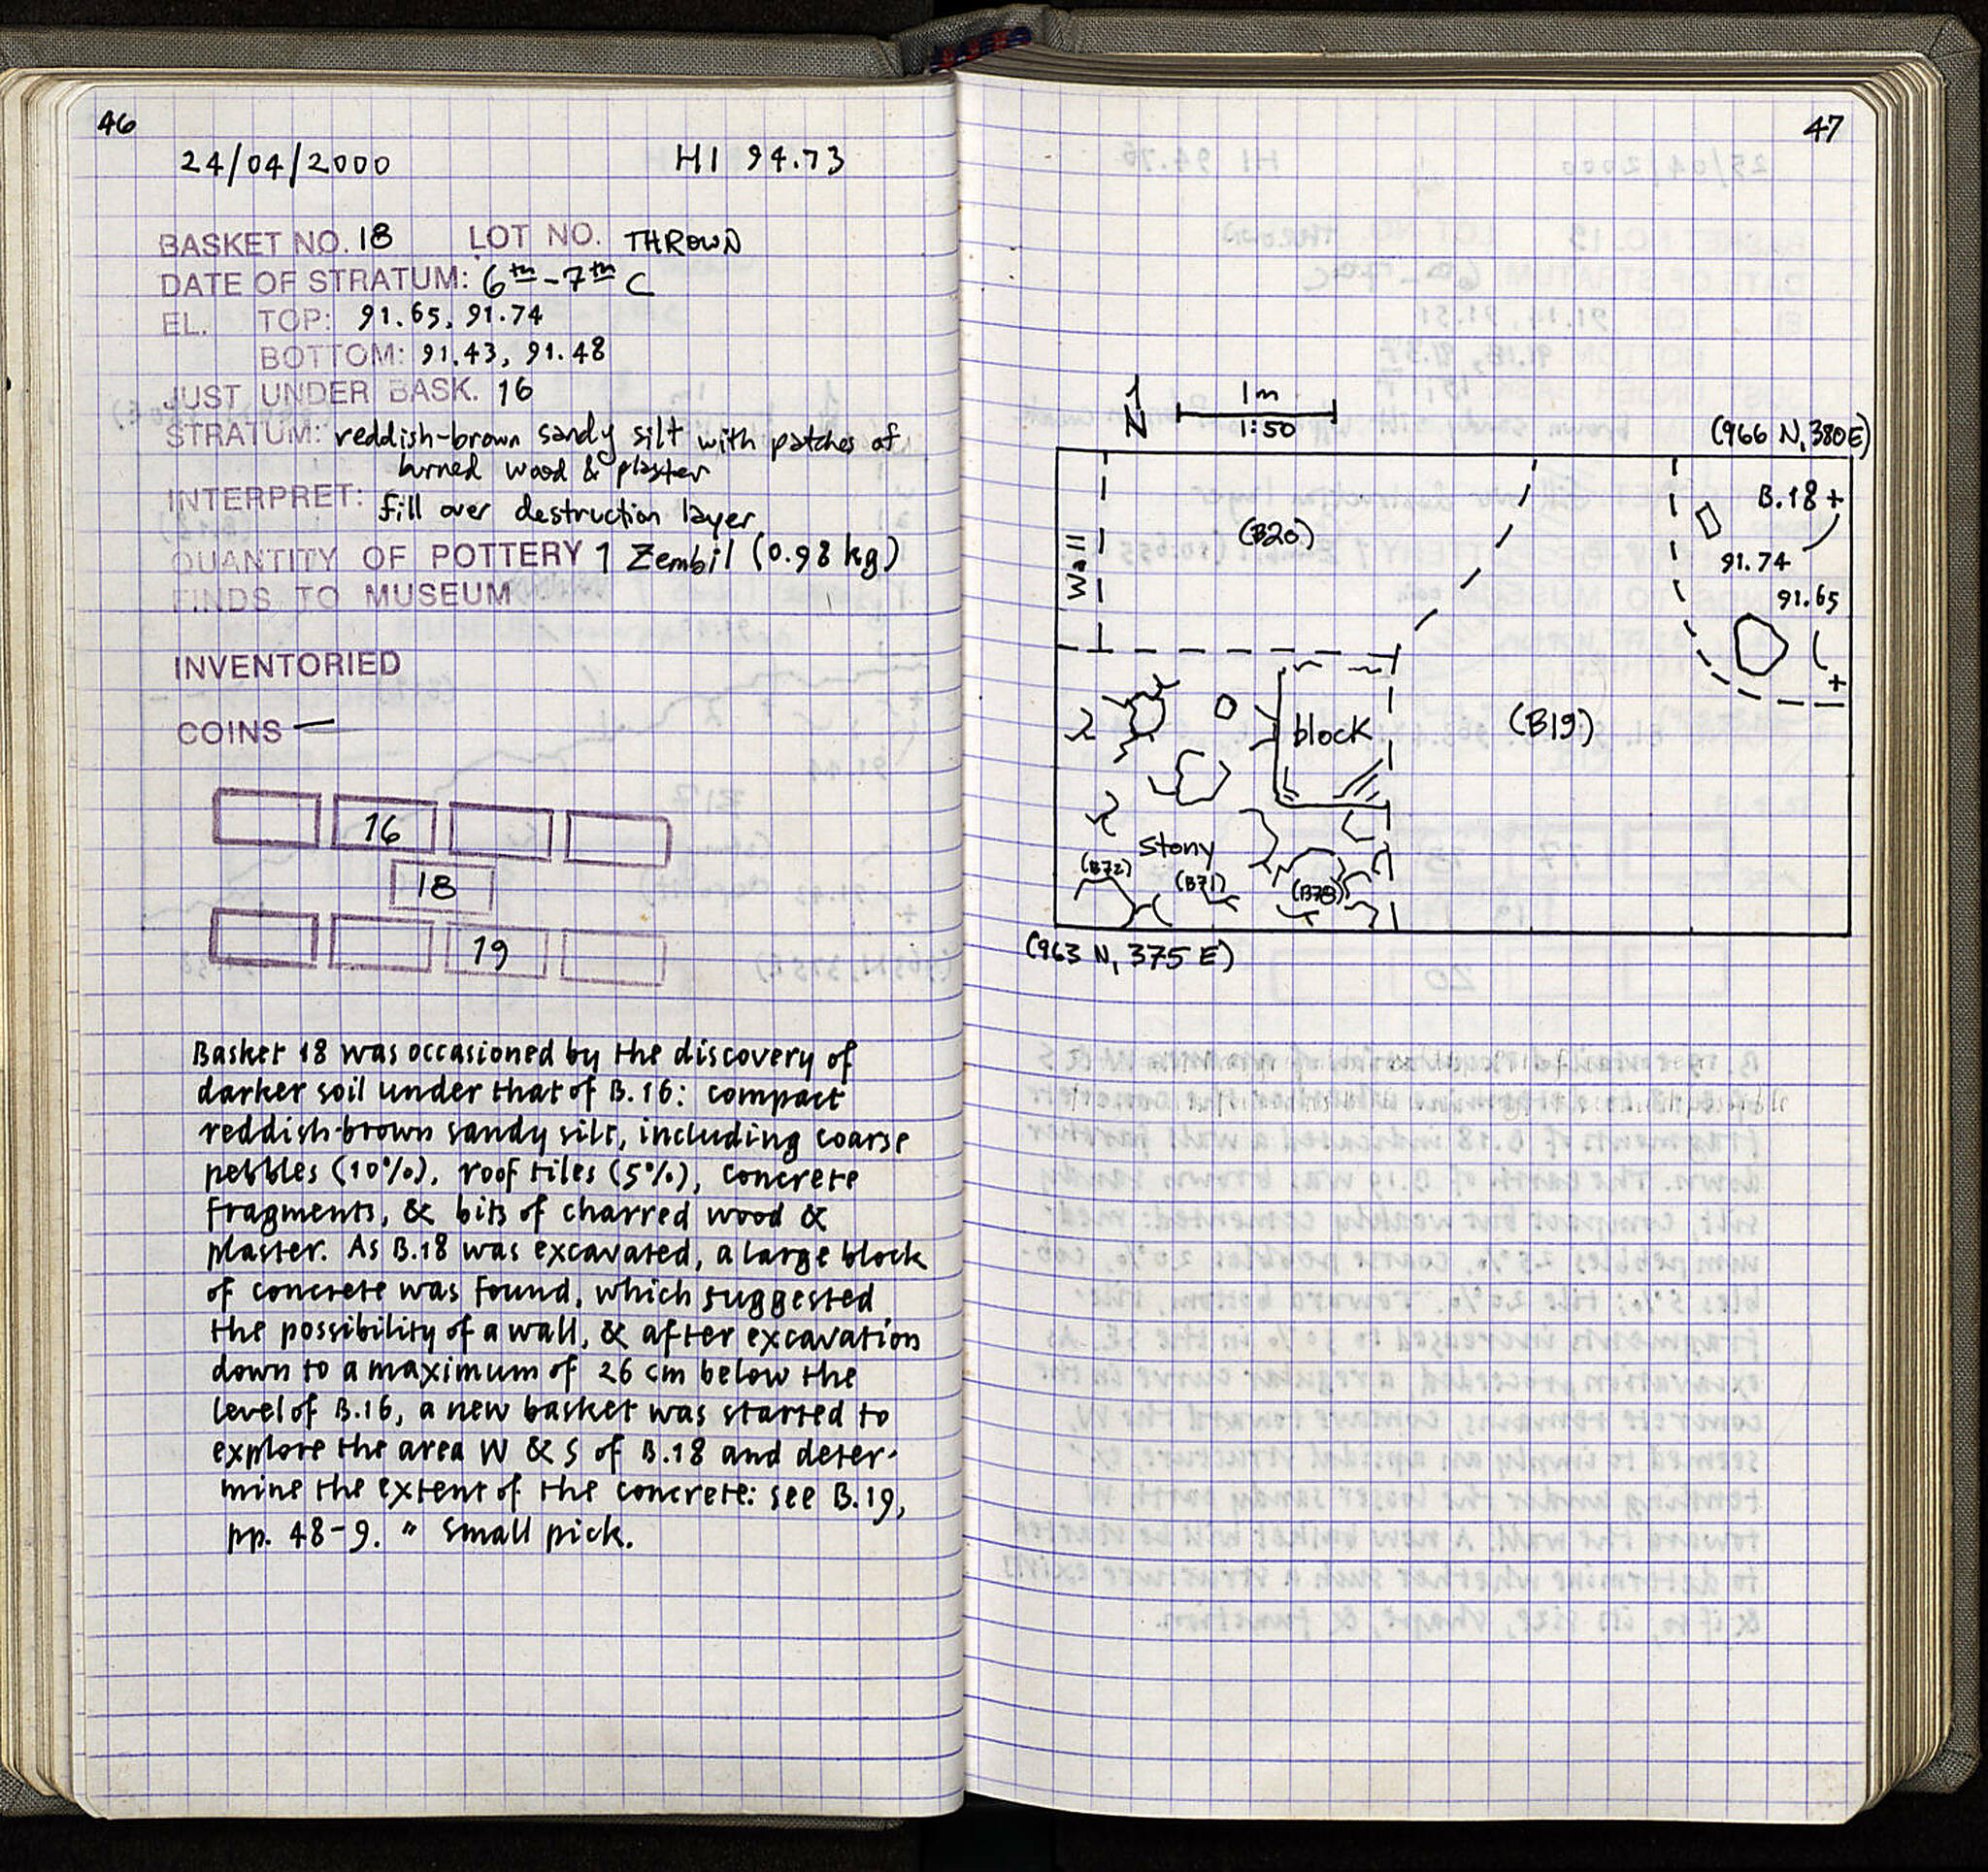 46
24/04/2000 HI 94.73
BASKET NO. 18 LOT NO. THROWN
DATE OF STRATUM: 6th-7th C
EL. TOP: 91.65, 91.74
BOTTOM: 91.43, 91.48
JUST UNDER BASK. 16
STRATUM: reddish-brown sandy silt with patches of
burned wood & plaster
INTERPRET: fill over destruction layer
QUANTITY OF POTTERY 1 Zembil (0.98 kg)
FINDS TO MUSEUM
INVENTORIED
COINS —
16
18
19
Basket 18 was occasioned by the discovery of
darker soil under that of B.16: compact
reddish-brown sandy silt, including coarse
pebbles (10%), roof tiles (5%), concrete
fragments, & bits of charred wood &
plaster. As B.18 was excavated, a large block
of concrete was found, which suggested
the possibility of a wall, & after excavation
down to a maximum of 26 cm below the
level of B.16, a new basket was started to
explore the area W & S of B.18 and deter-
mine the extent of the concrete: see B.19,
pp. 48-9. " Small pick.
47
N
1m
1:50
(966 N, 380E)
Wall
(B20)
B.18 +
91.74
91.65
+
block
(B19)
Stony
(B72)
(B71)
(963 N, 375 E)